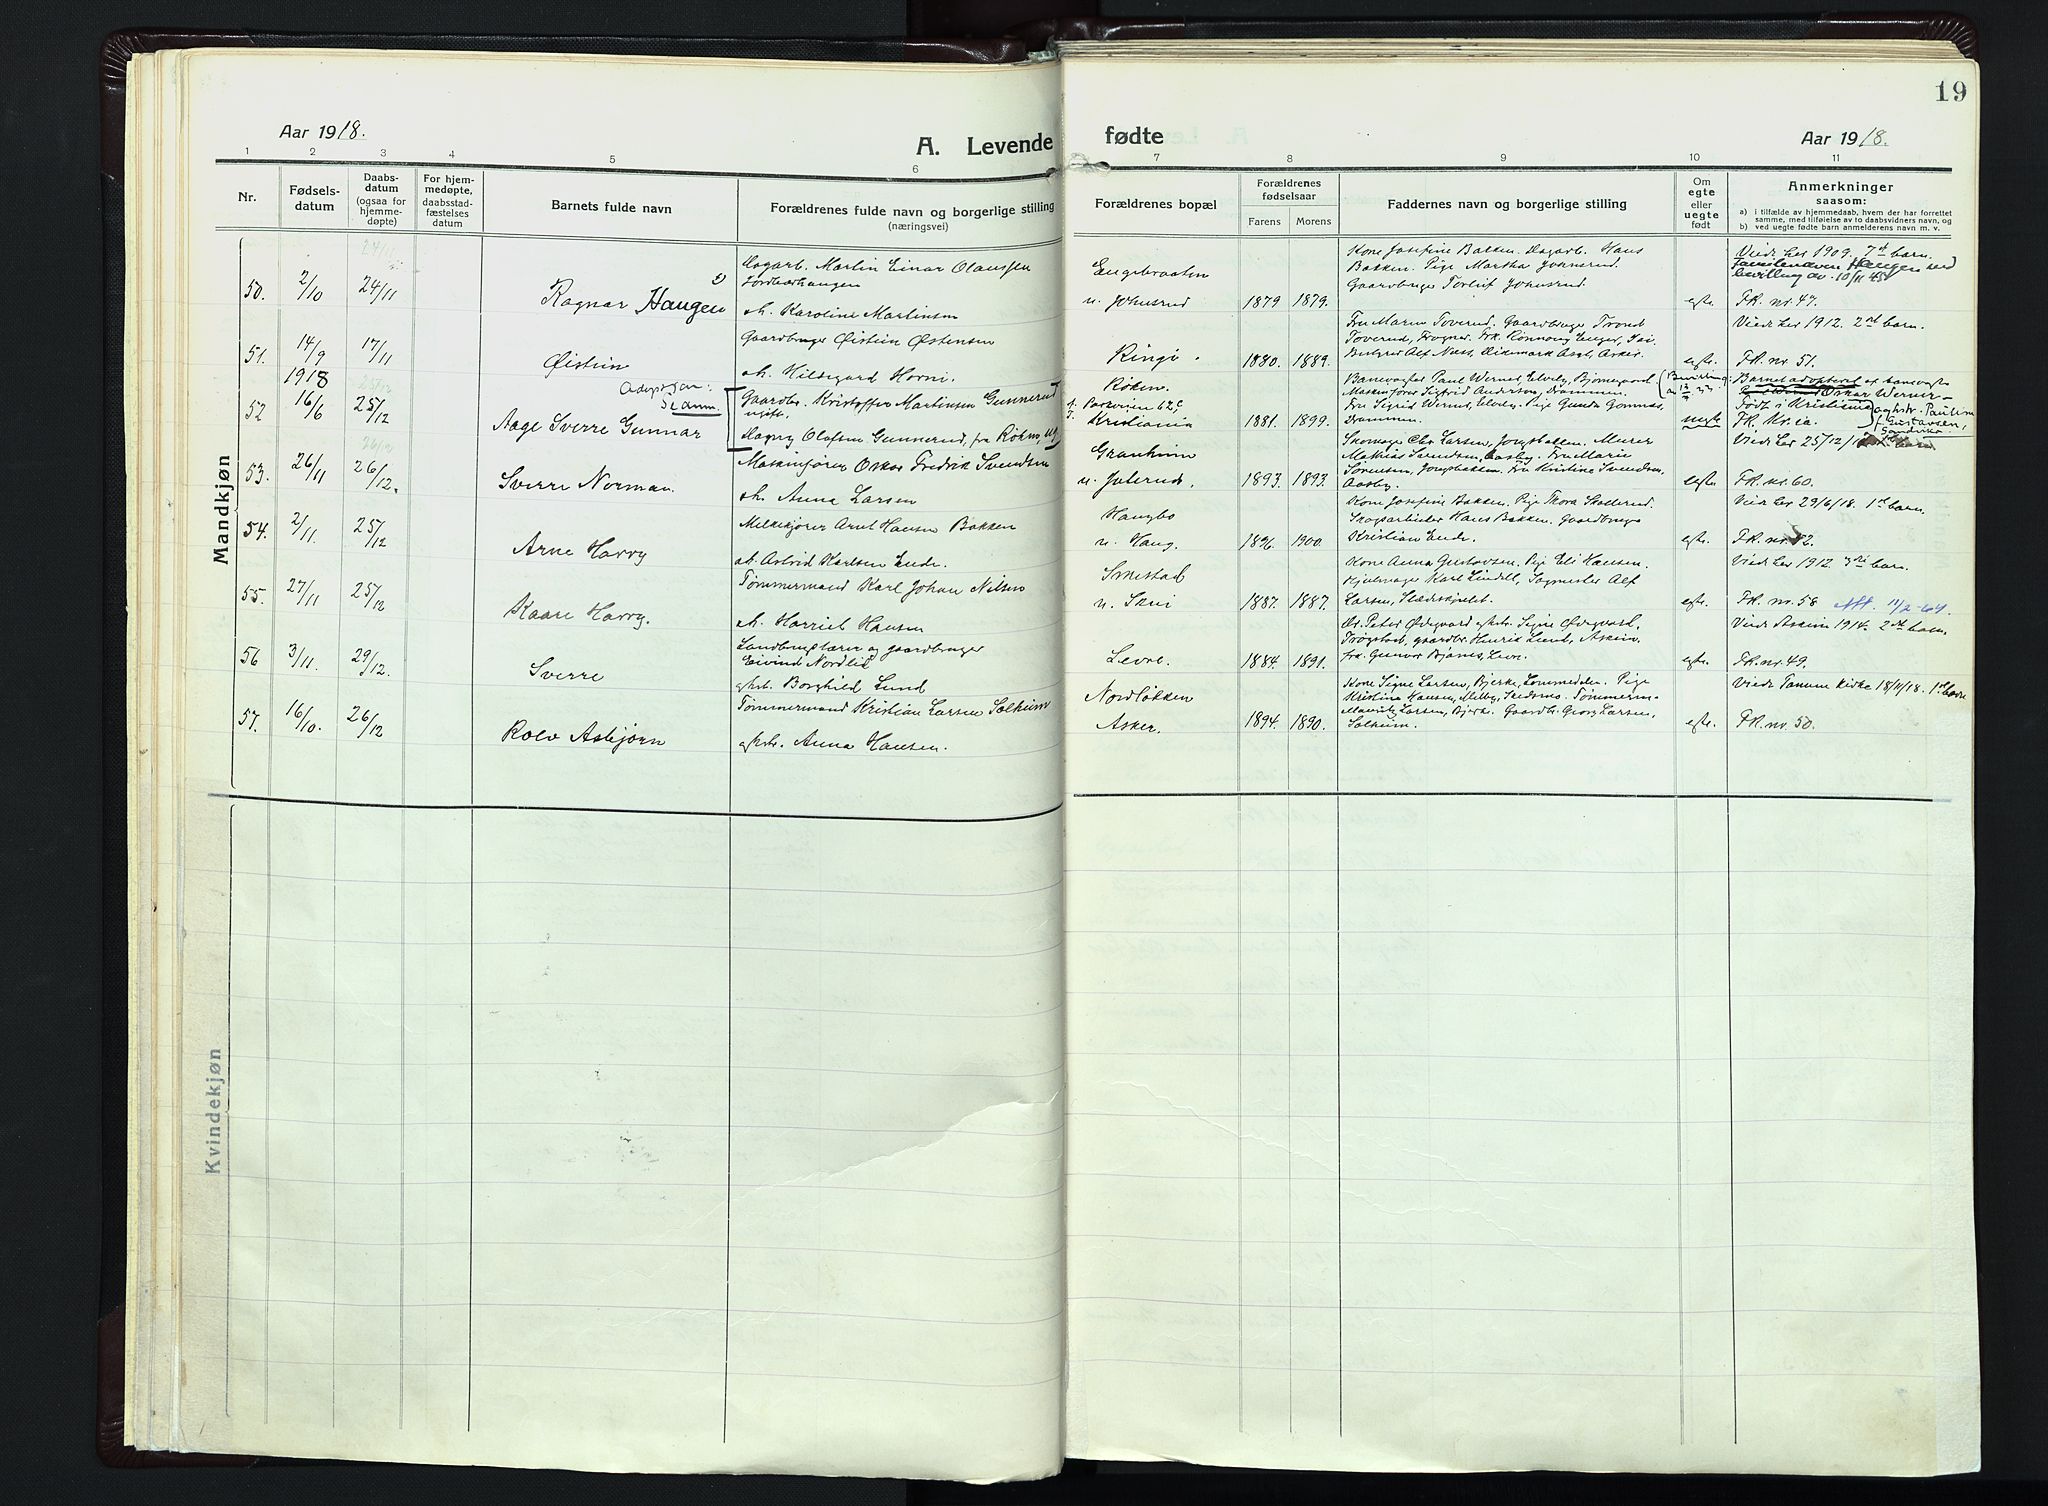 19
Aar 1918.
A. Levende fødte
Aar 1918.
1 2 3 4 5 6 7 8 9 10 11
Nr.
Fødsels-
datum
Daabs-
datum
(ogsaa for
hjemme-
døpte)
For hjem-
medøpte,
daabsstad-
fæstelses
datum
Barnets fulde navn
Forældrenes fulde navn og borgerlige stilling
(næringsvei)
Forældrenes bopæl
Forældrenes
fødselsaar
Farens Morens
Faddernes navn og borgerlige stilling
Om
egte
eller
uegte
født
Anmerkninger
saasom:
a) i tilfælde av hjemmedaab, hvem der har forrettet
samme, med tilføielse av to daabsvidners navn, og
b) ved uegte fødte barn anmelderens navn m. v.
Mandkjøn
50. 2/10 24/11 Ragnar Haugen
Dagarb. Martin Einar Olaussen
Tordbarhaugen
o.h. Karoline Martinsen
Engebraaten
u. Johnsrud 1879 1879.
Kone Josefine Bakken. Dagarb. Hans
Bakken. Pige Martha Johnsrud.
Gaardbruger Torleif Johnsrud.
egte.
Vied: her 1909. 7de barn.
Familienavn Haugen ved
bevilling av 10/11 45
FR. nr. 47.
51. 14/9 1918 17/11 Øistein
Gaardbruger Øistein Østensen
o.h. Hildegard Horni.
Ringi. 1880. 1889.
Fru Maren Toverud. Gaardbruger Trond
Toverud,
egte.
Vied: her 1912. 2det barn.
FR. nr. 51.
52 16/6 25/12 Aage Sverre Gunnar
Adoption:
Gaardbr. Kristoffer Martinsen Gunnerud
ugift.
Dagny Olafsen Gunnerud, fra Røken, ug.
Røken.
Parkveien 62c
Kristiania 1881. 1899.
Banevogter Paul Werner, Elvely, Bjørnegaard.
Maskinfører Sigfrid Anderson, Drammen.
Fru Sigrid Werner, Elvely. Pige Gunda Gomnæs,
Drammen.
uegte
Barnet adopteret af banevogter
Oskar Werner
Født i Kristiania
FR. Kr.ia.
og hstr. Pauline
Gustavsen,
Sandvika
53. 26/11 26/12. Sverre Norman.
Maskinfører Oskar Fredrik Svendsen
o.h. Anna Larsen
Granheim
u. Jutrud. 1893. 1893.
Skomager Chr. Larsen, Jongsbakken. Murer
Mathias Svendsen, Aasby. Fru Marie
Sørensen, Jongsbakken. Fru Kristine Svendsen
Aasby.
egte
Vied: her 25/12/1
FR. nr. 60.
54. 2/11 25/12 Arne Harry
Melkekjører Arnt Hansen Bakken
o.h. Astrid Karlsen Ende.
Haugbo
u. Haug. 1896. 1900.
Kone Josefine Bakken. Pige Thora Skollerud.
Skogsarbeider Hans Bakken. Gaardbruger
Kristian Ende.
egte.
Vied: her 29/6/18. 1ste barn.
FR. nr. 52.
55. 27/11 25/12 Kaare Harry.
Tømmermand Karl Johan Nilsen
o.h. Harriet Hansen
Smestad
u. Skui 1887. 1887.
Kone Anna Gustavsen. Pige Eli Hansen.
Hjulmager Karl Lindell, Sagmester Alf
Larsen,
egte.
Vied: her 1912 3die barn.
FR. nr. 58 Att. 11/2-64.
56 3/11. 29/12. Sverre
Landbrugslærer og gaardbruger
Eivind Nordlid
og hst. Borghild Lund
Levre. 1884. 1891.
Dr. Peter Ødegaard og hstr. Signe Ødegaard,
Trøgstad, gaardbr. Henrik Lund, Askim.
Frk. Gunvor Bjanes, Levre.
egte.
Vied: Askim 1914. 2det barn.
FR. nr. 49.
57. 16/10. 26/12 Rolv Asbjørn
Tømmermand Kristian Larsen Solheim
og hstr. Anna Hansen.
Nordløkken
Asker. 1894. 1890.
Kone Signe Larsen, Bjerke, Lommedalen. Pige
Kristina Hansen, Melby, Skedsmo. Tømmerm.
Mauritz Larsen, Bjerke. Gaardbr. Georg Larsen,
Solheim.
egte.
Vied: Tanum kirke 18/11/18. 1ste barn
FR. nr. 50.
Kvindekjøn